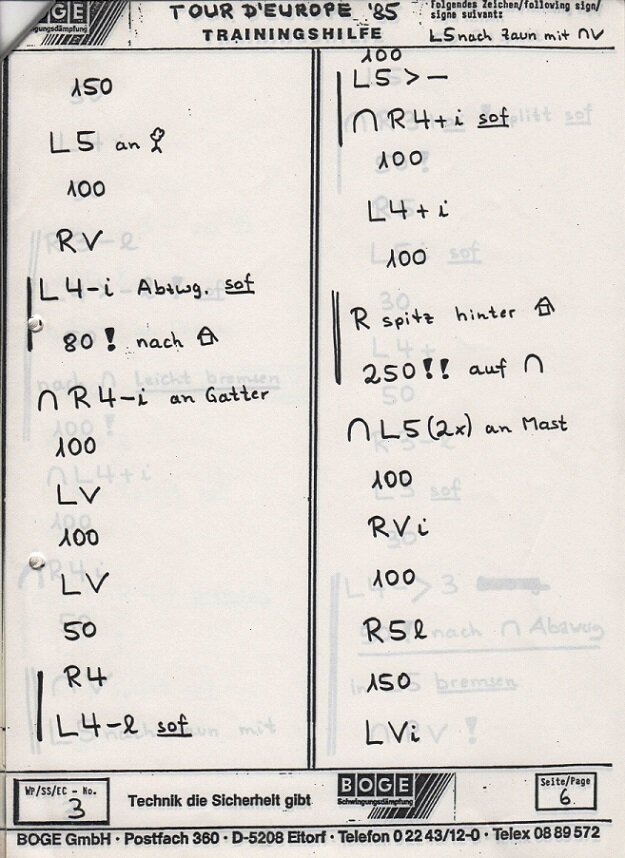 BOGE
Schwingungsdämpfung
TOUR D'EUROPE '85
TRAININGSHILFE
folgendes Zeichen/following sign/
signe suivant:
L5 nach Zaun mit ∩V
150
L5 an
100
RV
L4-i Abzwg. sof
80! nach
∩ R4-i an Gatter
100
LV
100
LV
50
R4
L4-l sof
100
L5 > –
∩ R4+i sof
100
L4+i
100
R spitz hinter
250!! auf ∩
∩ L5 (2x) an Mast
100
RVi
100
R5l
150
LVi
WP/SS/EC - No.
3
Technik die Sicherheit gibt
BOGE
Schwingungsdämpfung
Seite/Page
6
BOGE GmbH · Postfach 360 · D-5208 Eitorf · Telefon 0 22 43/12-0 · Telex 08 89 572